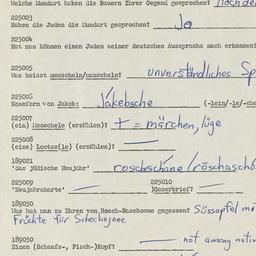 Welche Mundart haben die Bauern Ihrer Gegend gesprochen? Nach de
225003
Haben die Juden die Mundart gesprochen? Ja
225004
Hat man können einen Juden seiner deutschen Aussprache nach erkennen?
225005
Was heisst nooscheln/nuscheln? unverständliches Sp
225006
Koseform von Jakob: Jäkebsche (-lein/-le/-che
225007
(ein) Mooschele (erzählen)? + = märchen, lüge
225008
(eine) Lootze(le) (erzählen)? —
189021
'das jüdische Neujahr' roschschone / röschaschó
225009 225010
'Neujahrskarte' — 'Gunserbrief? —
189050
Was hat man zu Ehren von Rosch-Haschoone gegessen? Süssapfel mi
Früchte für Schechejone
189050
Einen (Schaafs-, Fisch-)Kopf? — not among nativ